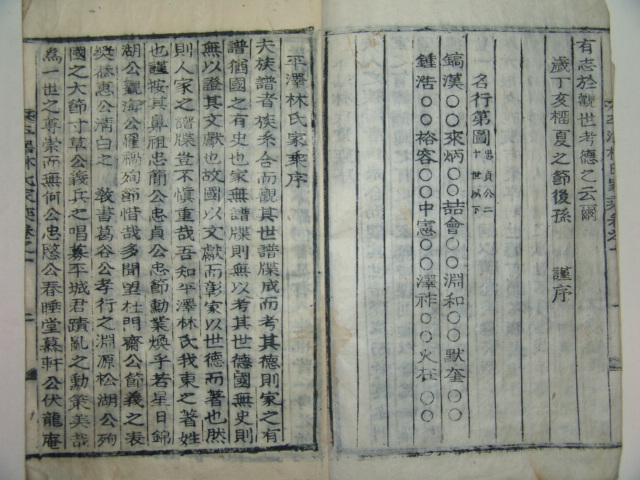 有志於觀世考德之云爾
歲丁亥榴夏之節後孫　謹序
名行第圖 忠貞公二十世以下
鎬漢○○來炳○○喆會○○淵和○○默奎○○
鍾浩○○裕容○○中憲○○澤祚○○火柱○○
平澤林氏家乘序
夫族譜者族系合而觀其世譜牒成而考其德則家之有
譜猶國之有史也家無譜牒則無以考其世德國無史則
無以證其文獻也故國以文獻而彰家以世德而著也然
則人家之譜牒豈不愼重哉吾知平澤林氏我東之著姓
也謹按其鼻祖忠簡公忠貞公忠節勳業煥乎若星日錦
湖公觀海公罹禍殉節惜哉多聞望杜門齋公節義之表
獎恭惠公淸白之　敎書葛谷公孝行之淵源松湖公殉
國之大節寸草公義兵之唱募平城君蹟亂之勳策美哉
爲一世之尊崇而無何公忠愍公春睡堂慕軒公伏龍庵